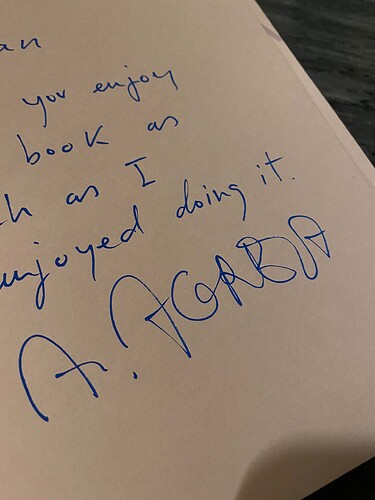 an
you enjoy
book as
ch as I
enjoyed doing it.
A. AGABA